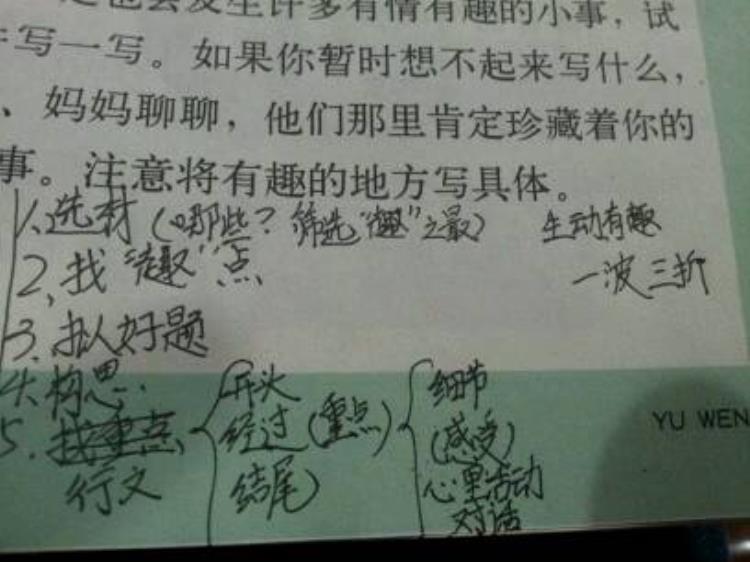 也会发生许多有情有趣的小事，试
写一写。如果你暂时想不起来写什么，
、妈妈聊聊，他们那里肯定珍藏着你的
事。注意将有趣的地方写具体。
1、选材（哪些？筛选“趣”之最） 生动有趣
2、找“趣”点 一波三折
3、拟好题
4、构思
5、找重点 行文
开头
经过（重点）
结尾
细节
（感受）
心里活动
对话
YU WEN